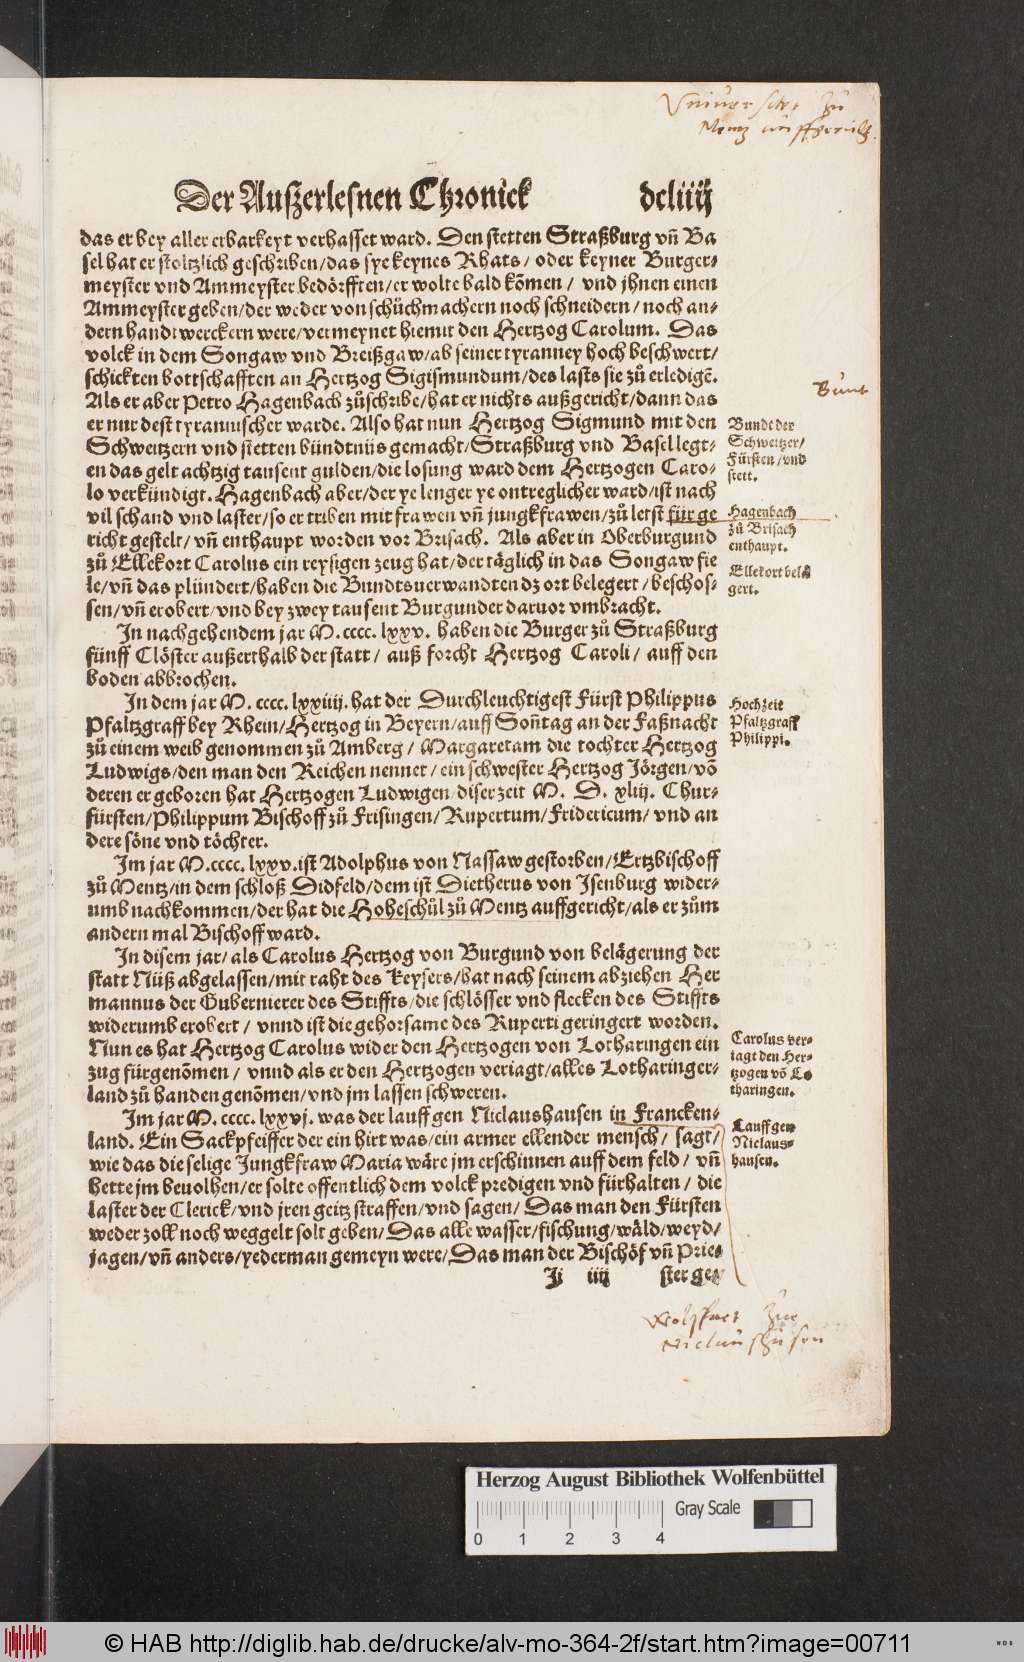 Vniuersitet zů
Mentz auffgericht.
Der Außerlesnen Chronick dcliiij
das er bey aller erbarkeyt verhasset ward. Den stetten Straßburg vñ Ba
sel hat er stoltzlich geschriben/das sye keynes Rhats/ oder keyner Burger-
meyster vnd Ammeyster bedörfften/er wolte bald kõmen/ vnd jhnen einen
Ammeyster geben/der weder von schůchmachern noch schneidern/noch an-
dern handtwerckern were/vermeynet hiemit den Hertzog Carolum. Das
volck in dem Songaw vnd Breißgaw/ab seiner tyranney hoch beschwert/
schickten bottschafften an Hertzog Sigismundum/des lasts sie zů erledigẽ.
Als er aber Petro Hagenbach zůschribe/hat er nichts außgericht/dann das
er nur dest tyrannischer warde. Also hat nun Hertzog Sigmund mit den
Schweitzern vnd stetten bündtnüs gemacht/Straßburg vnd Basel legt-
en das gelt achtzig tausent gulden/die losung ward dem Hertzogen Caro-
lo verkündigt. Hagenbach aber/der ye lenger ye ontreglicher ward/ist nach
vil schand vnd laster/so er triben mit frawen vñ jungkfrawen/zů letst für ge
richt gestelt/vñ enthaupt worden vor Brisach. Als aber in Oberburgund
zů Ellekort Carolus ein reysigen zeug hat/der täglich in das Songaw fie
le/vñ das plündert/haben die Bundtsuerwandten dz ort belegert/beschos-
sen/vñ erobert/vnd bey zwey tausent Burgunder daruor vmbracht.
In nachgehendem jar M. cccc. lxxv. haben die Burger zů Straßburg
fünff Clöster außerthalb der statt/ auß forcht Hertzog Caroli/ auff den
boden abbrochen.
In dem jar M. cccc. lxxiiij. hat der Durchleuchtigest Fürst Philippus
Pfaltzgraff bey Rhein/Hertzog in Beyern/auff Soñtag an der Faßnacht
zů einem weib genommen zů Amberg/ Margaretam die tochter Hertzog
Ludwigs/den man den Reichen nennet/ein schwester Hertzog Jörgen/võ
deren er geboren hat Hertzogen Ludwigen/diser zeit M. D. xliij. Chur-
fürsten/Philippum Bischoff zů Frisingen/Rupertum/Fridericum/ vnd an
dere söne vnd töchter.
Im jar M.cccc. lxxv.ist Adolphus von Nassaw gestorben/Ertzbischoff
zů Mentz/in dem schloß Didfeld/dem ist Dietherus von Isenburg wider-
umb nachkommen/der hat die Hoheschůl zů Mentz auffgericht/als er zům
andern mal Bischoff ward.
In disem jar/als Carolus Hertzog von Burgund von belägerung der
statt Nüß abgelassen/mit raht des Keysers/hat nach seinem abziehen Her
mannus der Gubernierer des Stiffts/die schlösser vnd flecken des Stiffts
widerumb erobert/ vnnd ist die gehorsame des Ruperti geringert worden.
Nun es hat Hertzog Carolus wider den Hertzogen von Lotharingen ein
zug fürgenõmen/ vnnd als er den Hertzogen veriagt/alles Lotharinger-
land zů handen genõmen/vnd jm lassen schweren.
Im jar M. cccc. lxxvj. was der lauff gen Niclaushausen in Francken-
land. Ein Sackpfeiffer der ein hirt was/ein armer ellender mensch/ sagt/
wie das die selige Jungkfraw Maria wäre jm erschinnen auff dem feld/ vñ
hette jm beuolhen/er solte offentlich dem volck predigen vnd fürhalten/ die
laster der Clerick/vnd jren geitz straffen/vnd sagen/ Das man den Fürsten
weder zoll noch weggelt solt geben/ Das alle wasser/fischung/wäld/weyd/
jagen/vñ anders/yederman gemeyn were/Das man der Bischöf vñ Prie-
Ii iiij ster gey
Bunt
Bundt der
Schweitzer/
Fürsten/vnd
stett.
Hagenbach
zů Brisach
enthaupt.
Ellekort belä
gert.
Hochzeit
Pfaltzgraff
Philippi.
Carolus ver-
iagt den Her-
tzogen võ Lo
tharingen.
Lauff gen
Niclaus-
hausen.
Wolffart zue
Niclaushausen
Herzog August Bibliothek Wolfenbüttel
Gray Scale
0 1 2 3 4
© HAB http://diglib.hab.de/drucke/alv-mo-364-2f/start.htm?image=00711